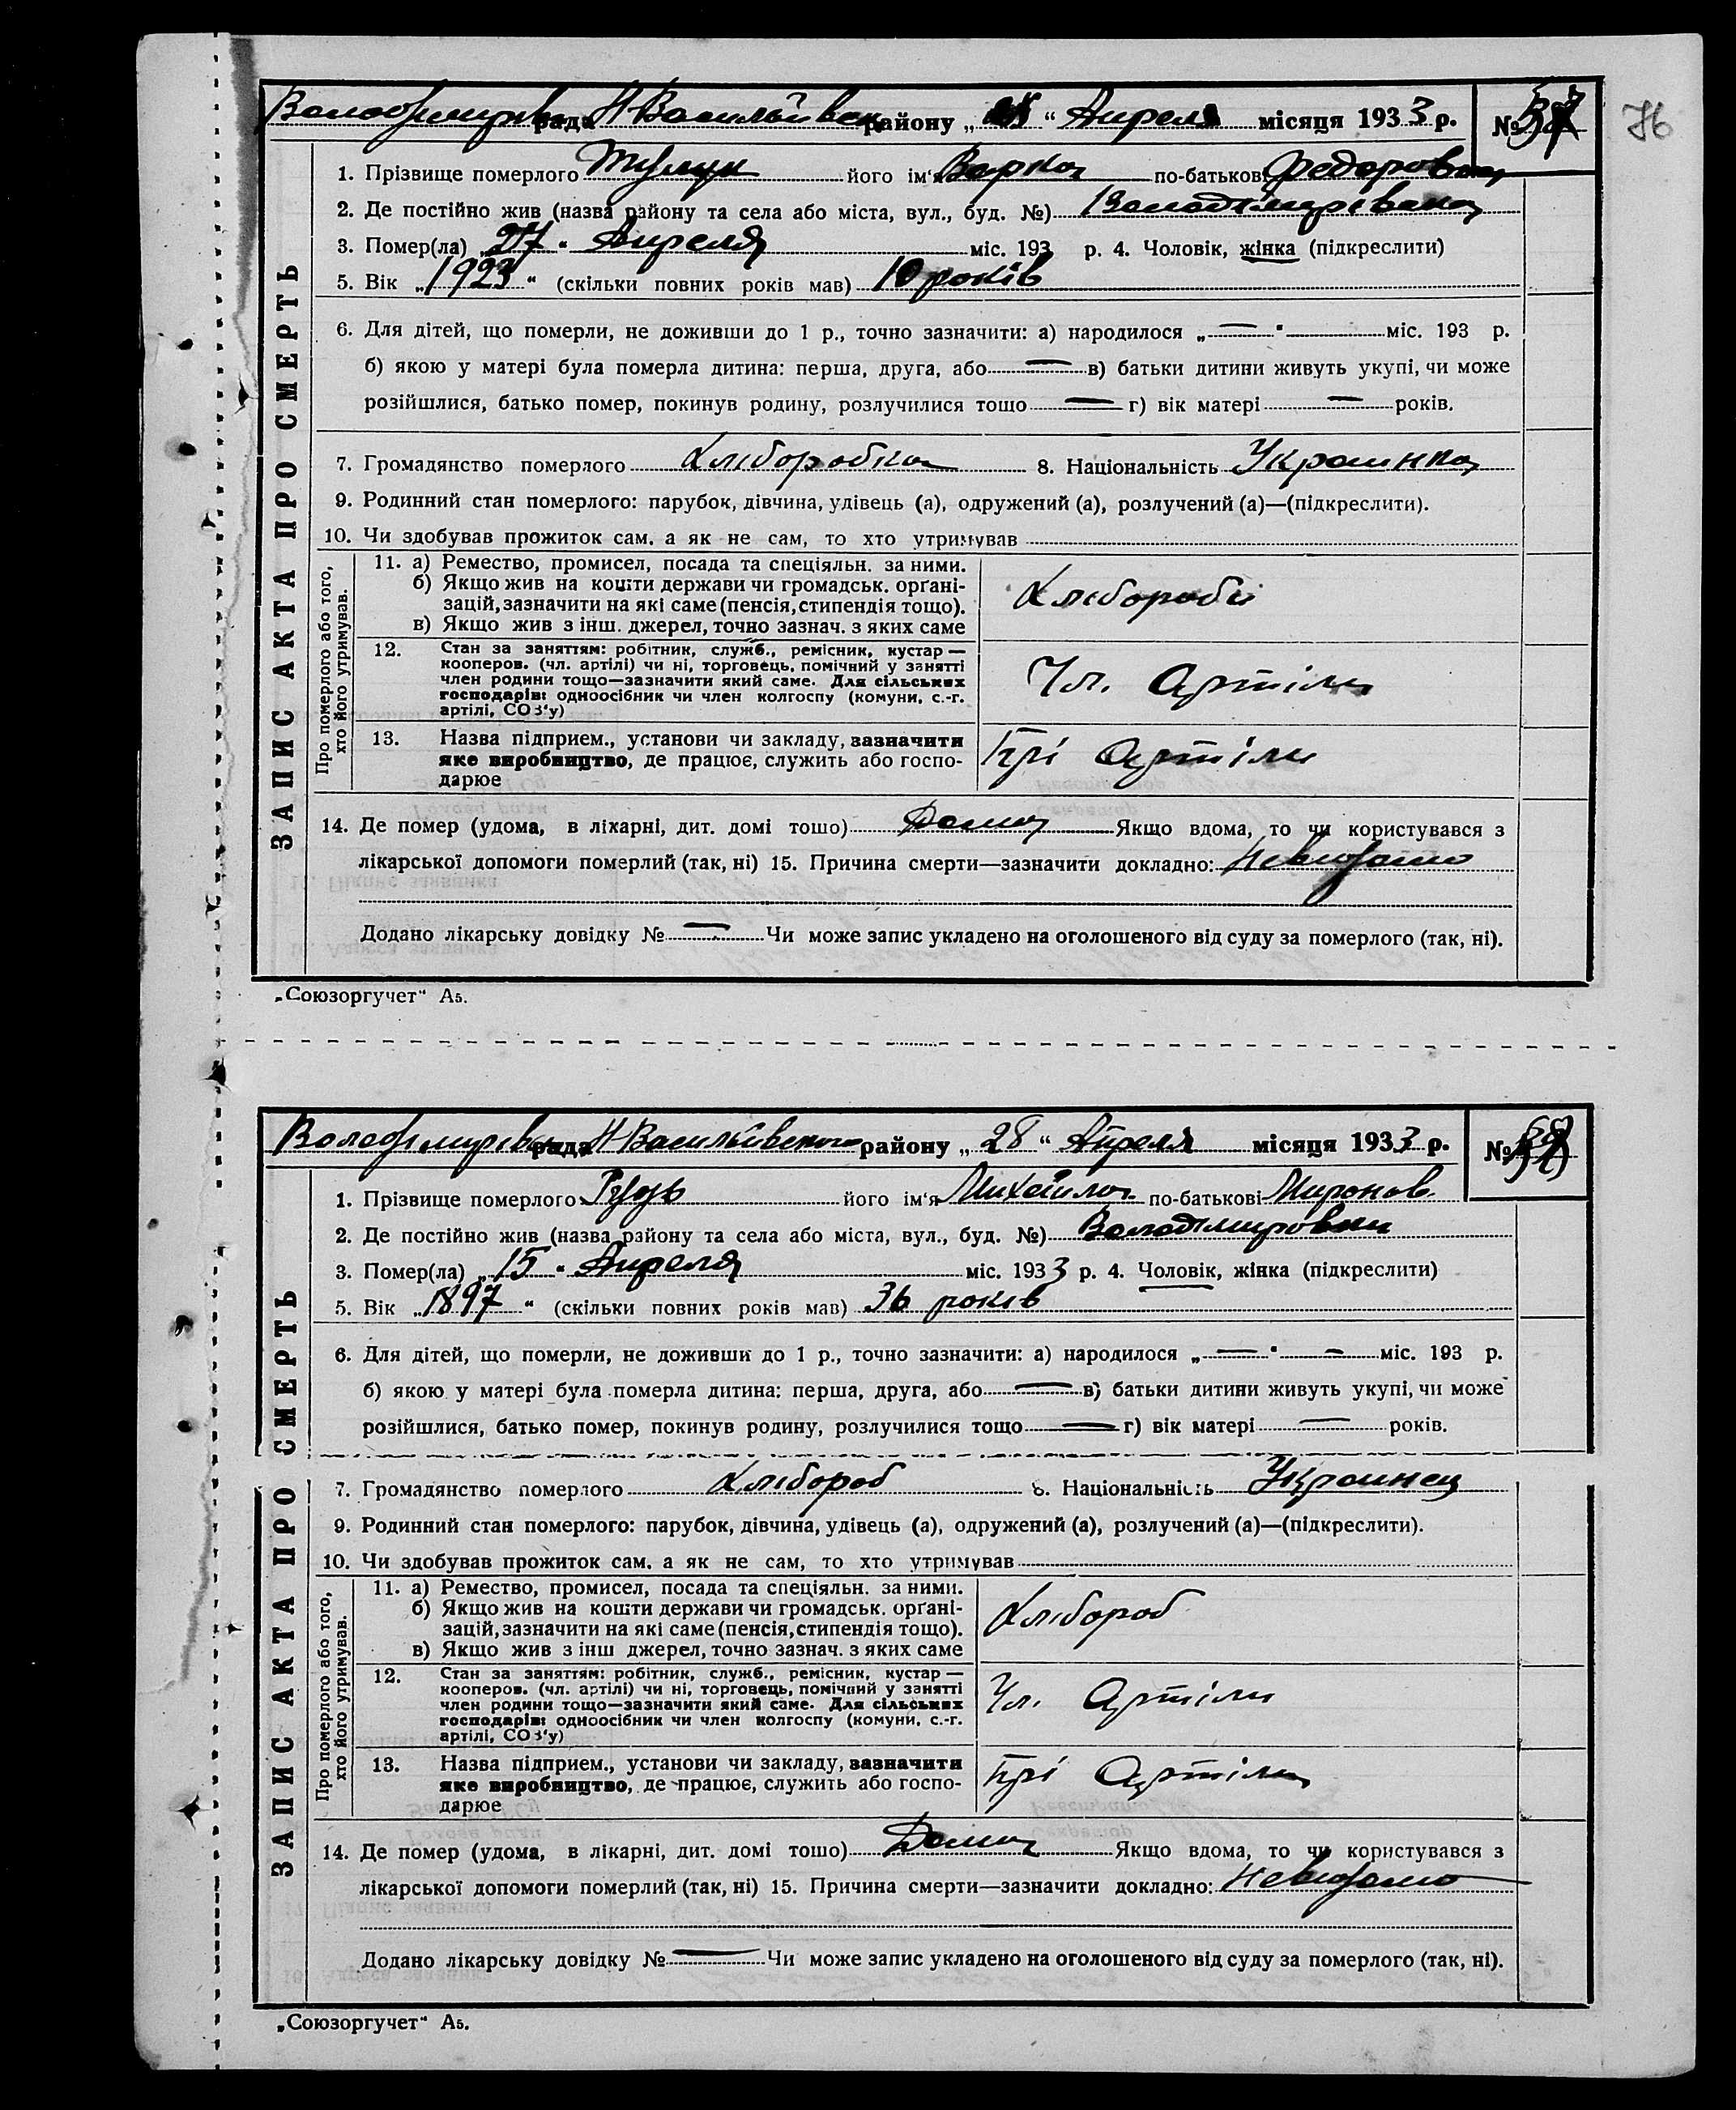 рада Н Васильївськ району „ “ Апреля місяця 1933 р. №
76
1. Прізвище померлого його ім'я Варка по-батькові Федоровна
2. Де постійно жив (назва району та села або міста, вул., буд. №)
3. Помер(ла) „27“ Апреля міс. 193 р. 4. Чоловік, жінка (підкреслити)
5. Вік „1923“ (скільки повних років мав) 10 років
6. Для дітей, що померли, не доживши до 1 р., точно зазначити: а) народилося „—“ міс. 193 р.
б) якою у матері була померла дитина: перша, друга, або — в) батьки дитини живуть укупі, чи може
розійшлися, батько помер, покинув родину, розлучилися тощо — г) вік матері — років.
7. Громадянство померлого Хліборобка 8. Національність Украинка
9. Родинний стан померлого: парубок, дівчина, удівець (а), одружений (а), розлучений (а)—(підкреслити).
10. Чи здобував прожиток сам, а як не сам, то хто утримував
ЗАПИС АКТА ПРО СМЕРТЬ
Про померлого або того, хто його утримував.
11. а) Ремество, промисел, посада та спеціяльн. за ними.
б) Якщо жив на кошти держави чи громадськ. орґані-
зацій, зазначити на які саме (пенсія, стипендія тощо).
в) Якщо жив з інш. джерел, точно зазнач. з яких саме
Хлібороби
12. Стан за заняттям: робітник, служб., ремісник, кустар —
кооперов. (чл. артілі) чи ні, торговець, помічний у занятті
член родини тощо—зазначити який саме. Для сільських
господарів: одноосібник чи член колгоспу (комуни, с.-г.
артілі, СОЗ'у)
Чл. Артіли
13. Назва підприєм., установи чи закладу, зазначити
яке виробництво, де працює, служить або госпо-
дарює
При Артіли
14. Де помер (удома, в ліхарні, дит. домі тошо) Дома Якщо вдома, то чи користувався з
лікарської допомоги померлий (так, ні) 15. Причина смерти—зазначити докладно: Невидомо
Додано лікарську довідку № — Чи може запис укладено на оголошеного від суду за померлого (так, ні).
„Союзоргучет“ А5.
рада Н Васильївського району „28“ Апреля місяця 1933 р. №
1. Прізвище померлого його ім'я Михайло по-батькові Миронов.
2. Де постійно жив (назва району та села або міста, вул., буд. №)
3. Помер(ла) „15“ Апреля міс. 1933 р. 4. Чоловік, жінка (підкреслити)
5. Вік „1897“ (скільки повних років мав) 36 років
6. Для дітей, що померли, не доживши до 1 р., точно зазначити: а) народилося „—“ — міс. 193 р.
б) якою у матері була померла дитина: перша, друга, або — в) батьки дитини живуть укупі, чи може
розійшлися, батько помер, покинув родину, розлучилися тощо — г) вік матері — років.
7. Громадянство померлого Хлібороб 8. Національність Украинец
9. Родинний стан померлого: парубок, дівчина, удівець (а), одружений (а), розлучений (а)—(підкреслити).
10. Чи здобував прожиток сам, а як не сам, то хто утримував
ЗАПИС АКТА ПРО СМЕРТЬ
Про померлого або того, хто його утримував.
11. а) Ремество, промисел, посада та спеціяльн. за ними.
б) Якщо жив на кошти держави чи громадськ. орґані-
зацій, зазначити на які саме (пенсія, стипендія тощо).
в) Якщо жив з інш джерел, точно зазнач. з яких саме
Хлібороб
12. Стан за заняттям: робітник, служб., ремісник, кустар —
кооперов. (чл. артілі) чи ні, торговець, помічний у занятті
член родини тощо—зазначити який саме. Для сільських
господарів: одноосібник чи член колгоспу (комуни, с.-г.
артілі, СОЗ'у)
Чл. Артіли
13. Назва підприєм., установи чи закладу, зазначити
яке виробництво, де працює, служить або госпо-
дарює
При Артіли
14. Де помер (удома, в лікарні, дит. домі тошо) Дома Якщо вдома, то чи користувався з
лікарської допомоги померлий (так, ні) 15. Причина смерти—зазначити докладно: Невидомо
Додано лікарську довідку № — Чи може запис укладено на оголошеного від суду за померлого (так, ні).
„Союзоргучет“ А5.